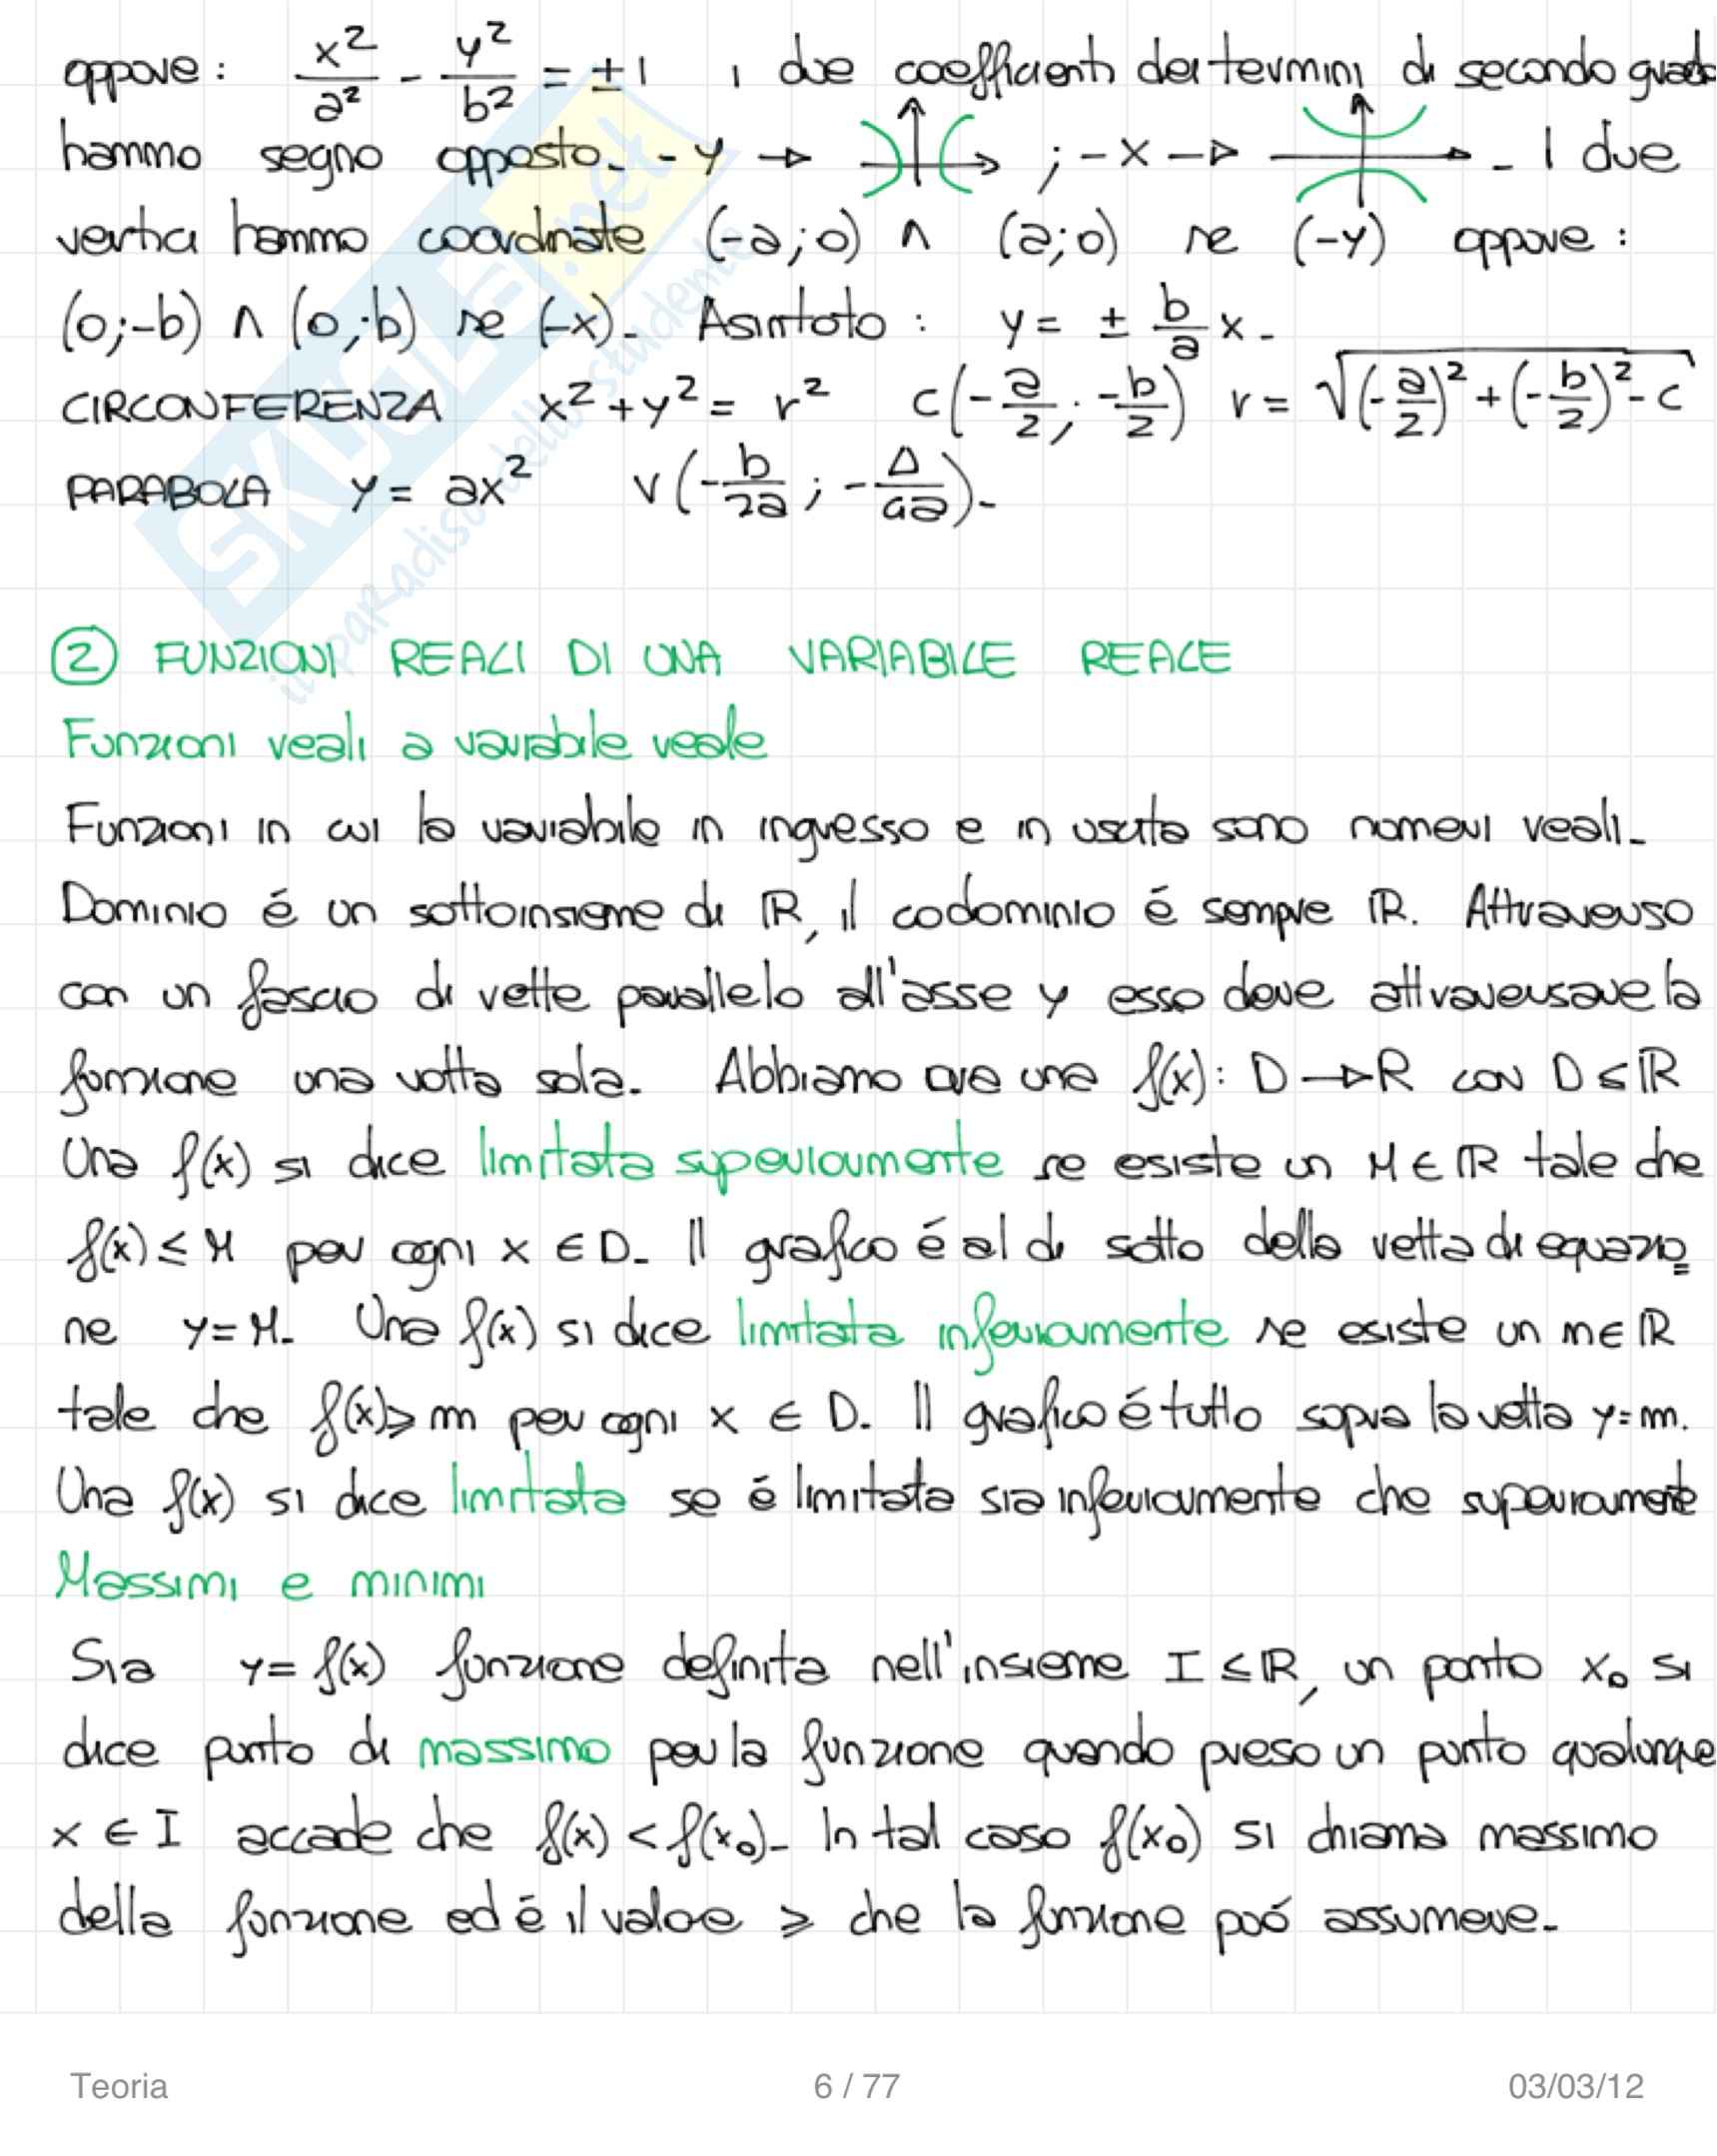 oppure: x²/a² - y²/b² = ±1 i due coefficienti dei termini di secondo grado
hanno segno opposto. -y → ; -x → . I due
vertici hanno coordinate (-a;0) ∧ (a;0) se (-y) oppure:
(0;-b) ∧ (0;b) se (-x). Asintoto: y = ± b/a x.
CIRCONFERENZA x²+y² = r² C(-a/2; -b/2) r = √((-a/2)²+(-b/2)²-c)
PARABOLA y = ax² V(-b/2a; -Δ/4a).
② FUNZIONI REALI DI UNA VARIABILE REALE
Funzioni reali a variabile reale
Funzioni in cui la variabile in ingresso e in uscita sono numeri reali.
Dominio é un sottoinsieme di ℝ, il codominio é sempre ℝ. Attraverso
con un fascio di rette parallelo all'asse y esso deve attraversare la
funzione una volta sola. Abbiamo ora una f(x): D→R con D≤ℝ
Una f(x) si dice limitata superiormente se esiste un M∈ℝ tale che
f(x)≤M per ogni x∈D. Il grafico é al di sotto della retta di equazio=
ne y=M. Una f(x) si dice limitata inferiormente se esiste un m∈ℝ
tale che f(x)≥m per ogni x∈D. Il grafico é tutto sopra la retta y=m.
Una f(x) si dice limitata se é limitata sia inferiormente che superiormente
Massimi e minimi
Sia y=f(x) funzione definita nell'insieme I≤ℝ, un punto x₀ si
dice punto di massimo per la funzione quando preso un punto qualunque
x∈I accade che f(x)<f(x₀). In tal caso f(x₀) si chiama massimo
della funzione ed é il valore ≥ che la funzione puó assumere.
SKUOLA.net
il paradiso dello studente
Teoria 6 / 77 03/03/12